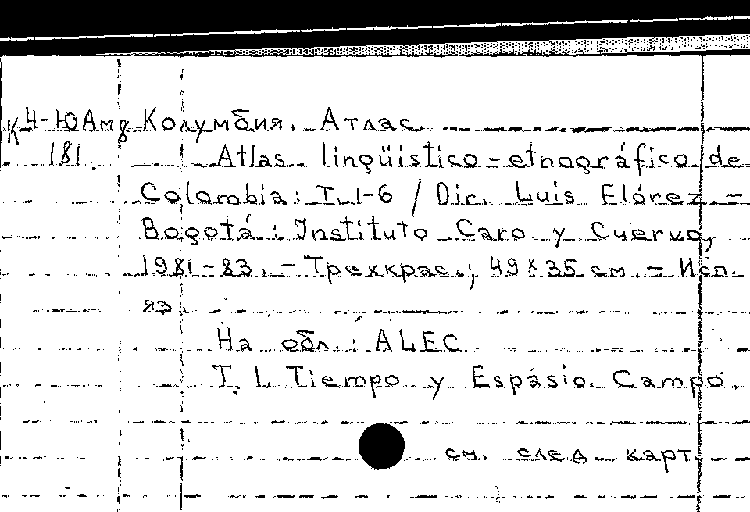 К Ч-ЮАмв Колумбия. Атлас
181. Atlas lingüistico-etnográfico de
Colombia: T. 1-6 / Dir. Luis Elórez -
Bogotá: Instituto Caro y Cuervo,
1981-83. - Трехкрас.; 49 x 35 см. - Исп.
яз.
На обл.: ALEC
T. 1. Tiempo y Espásio. Campo.
см. след. карт.